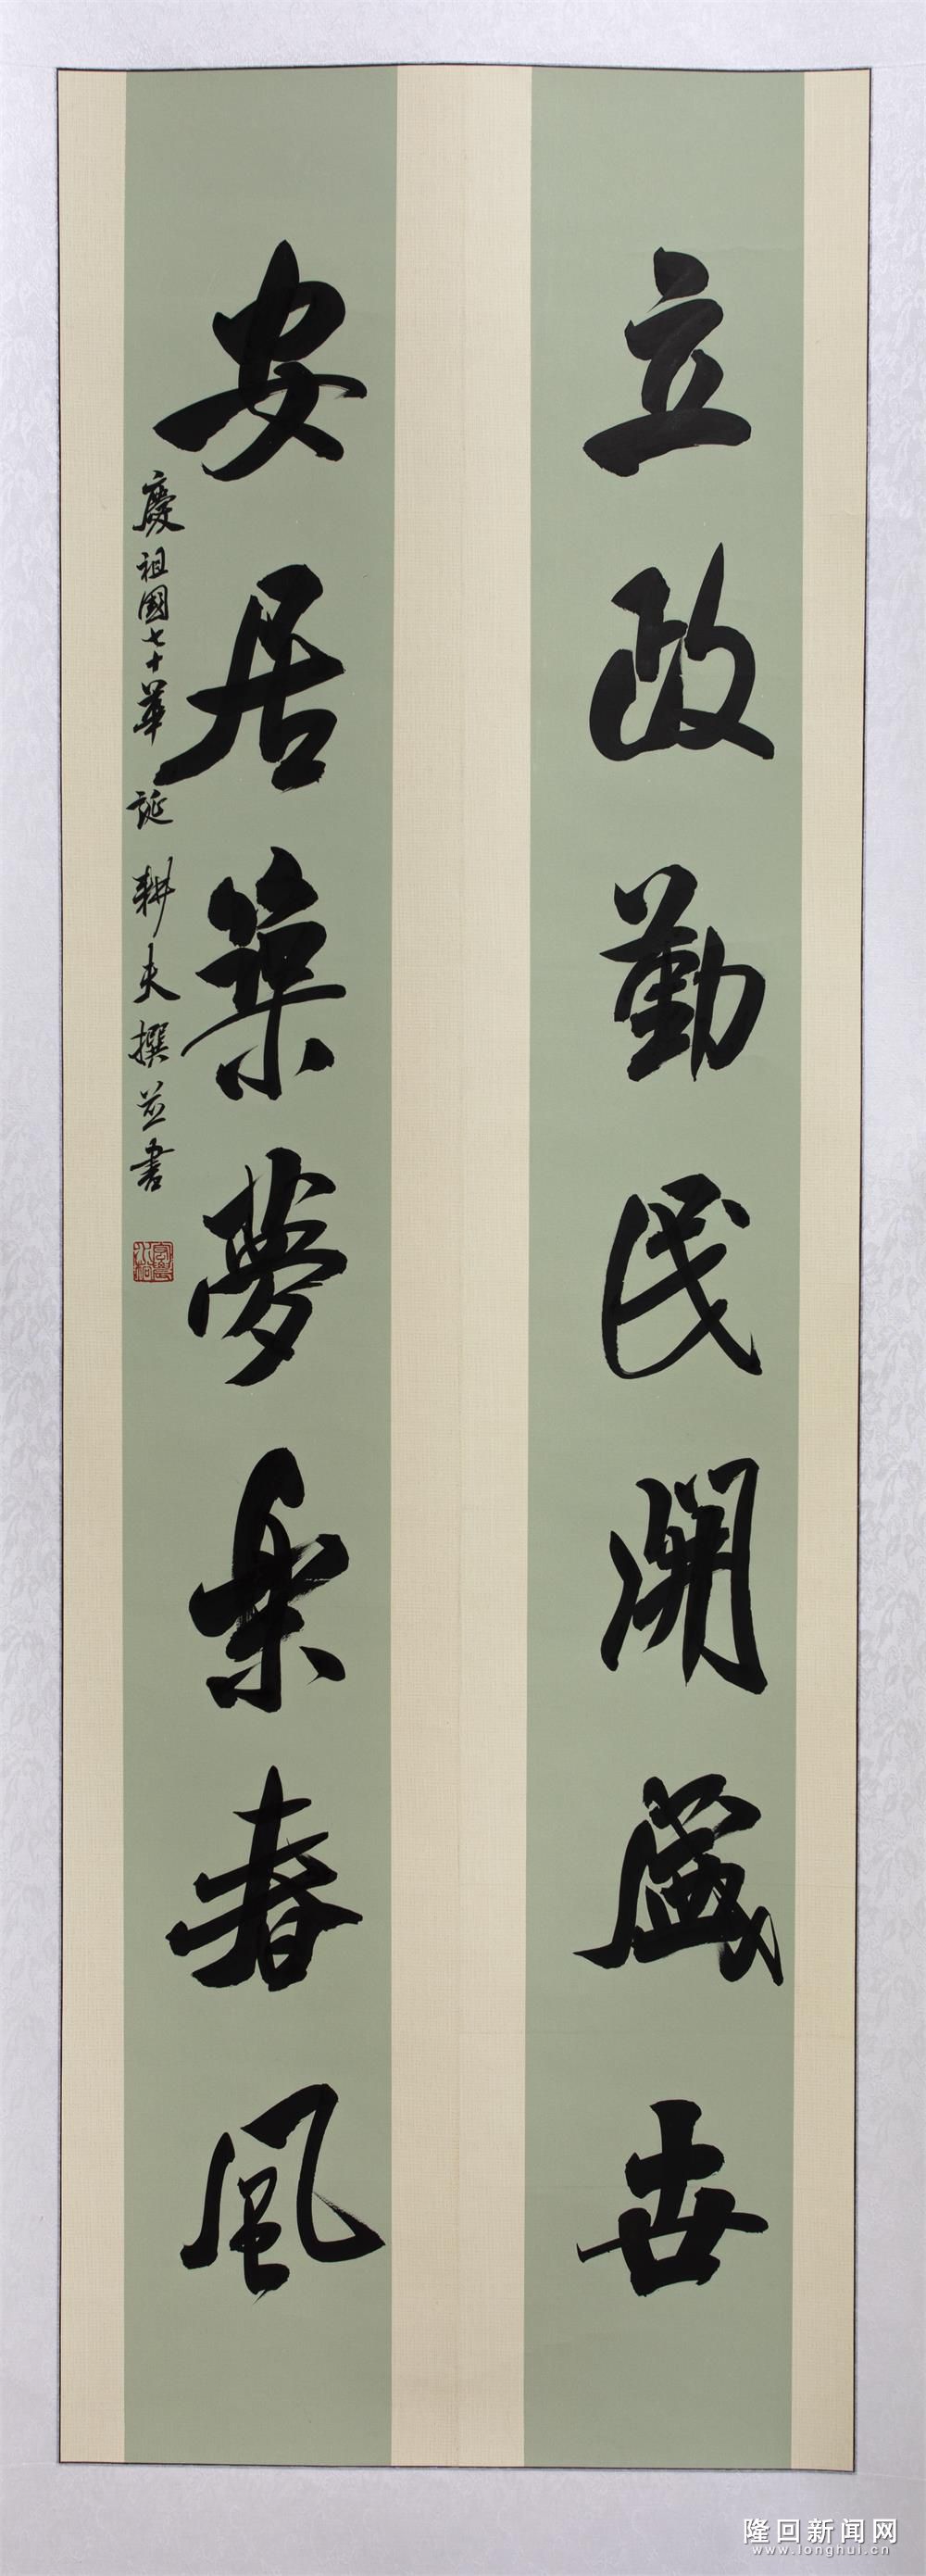 立政勤民開盛世
安居築夢樂春風
慶祖國七十華誕 耕夫撰並書
隆回新闻网
www.longhui.cn